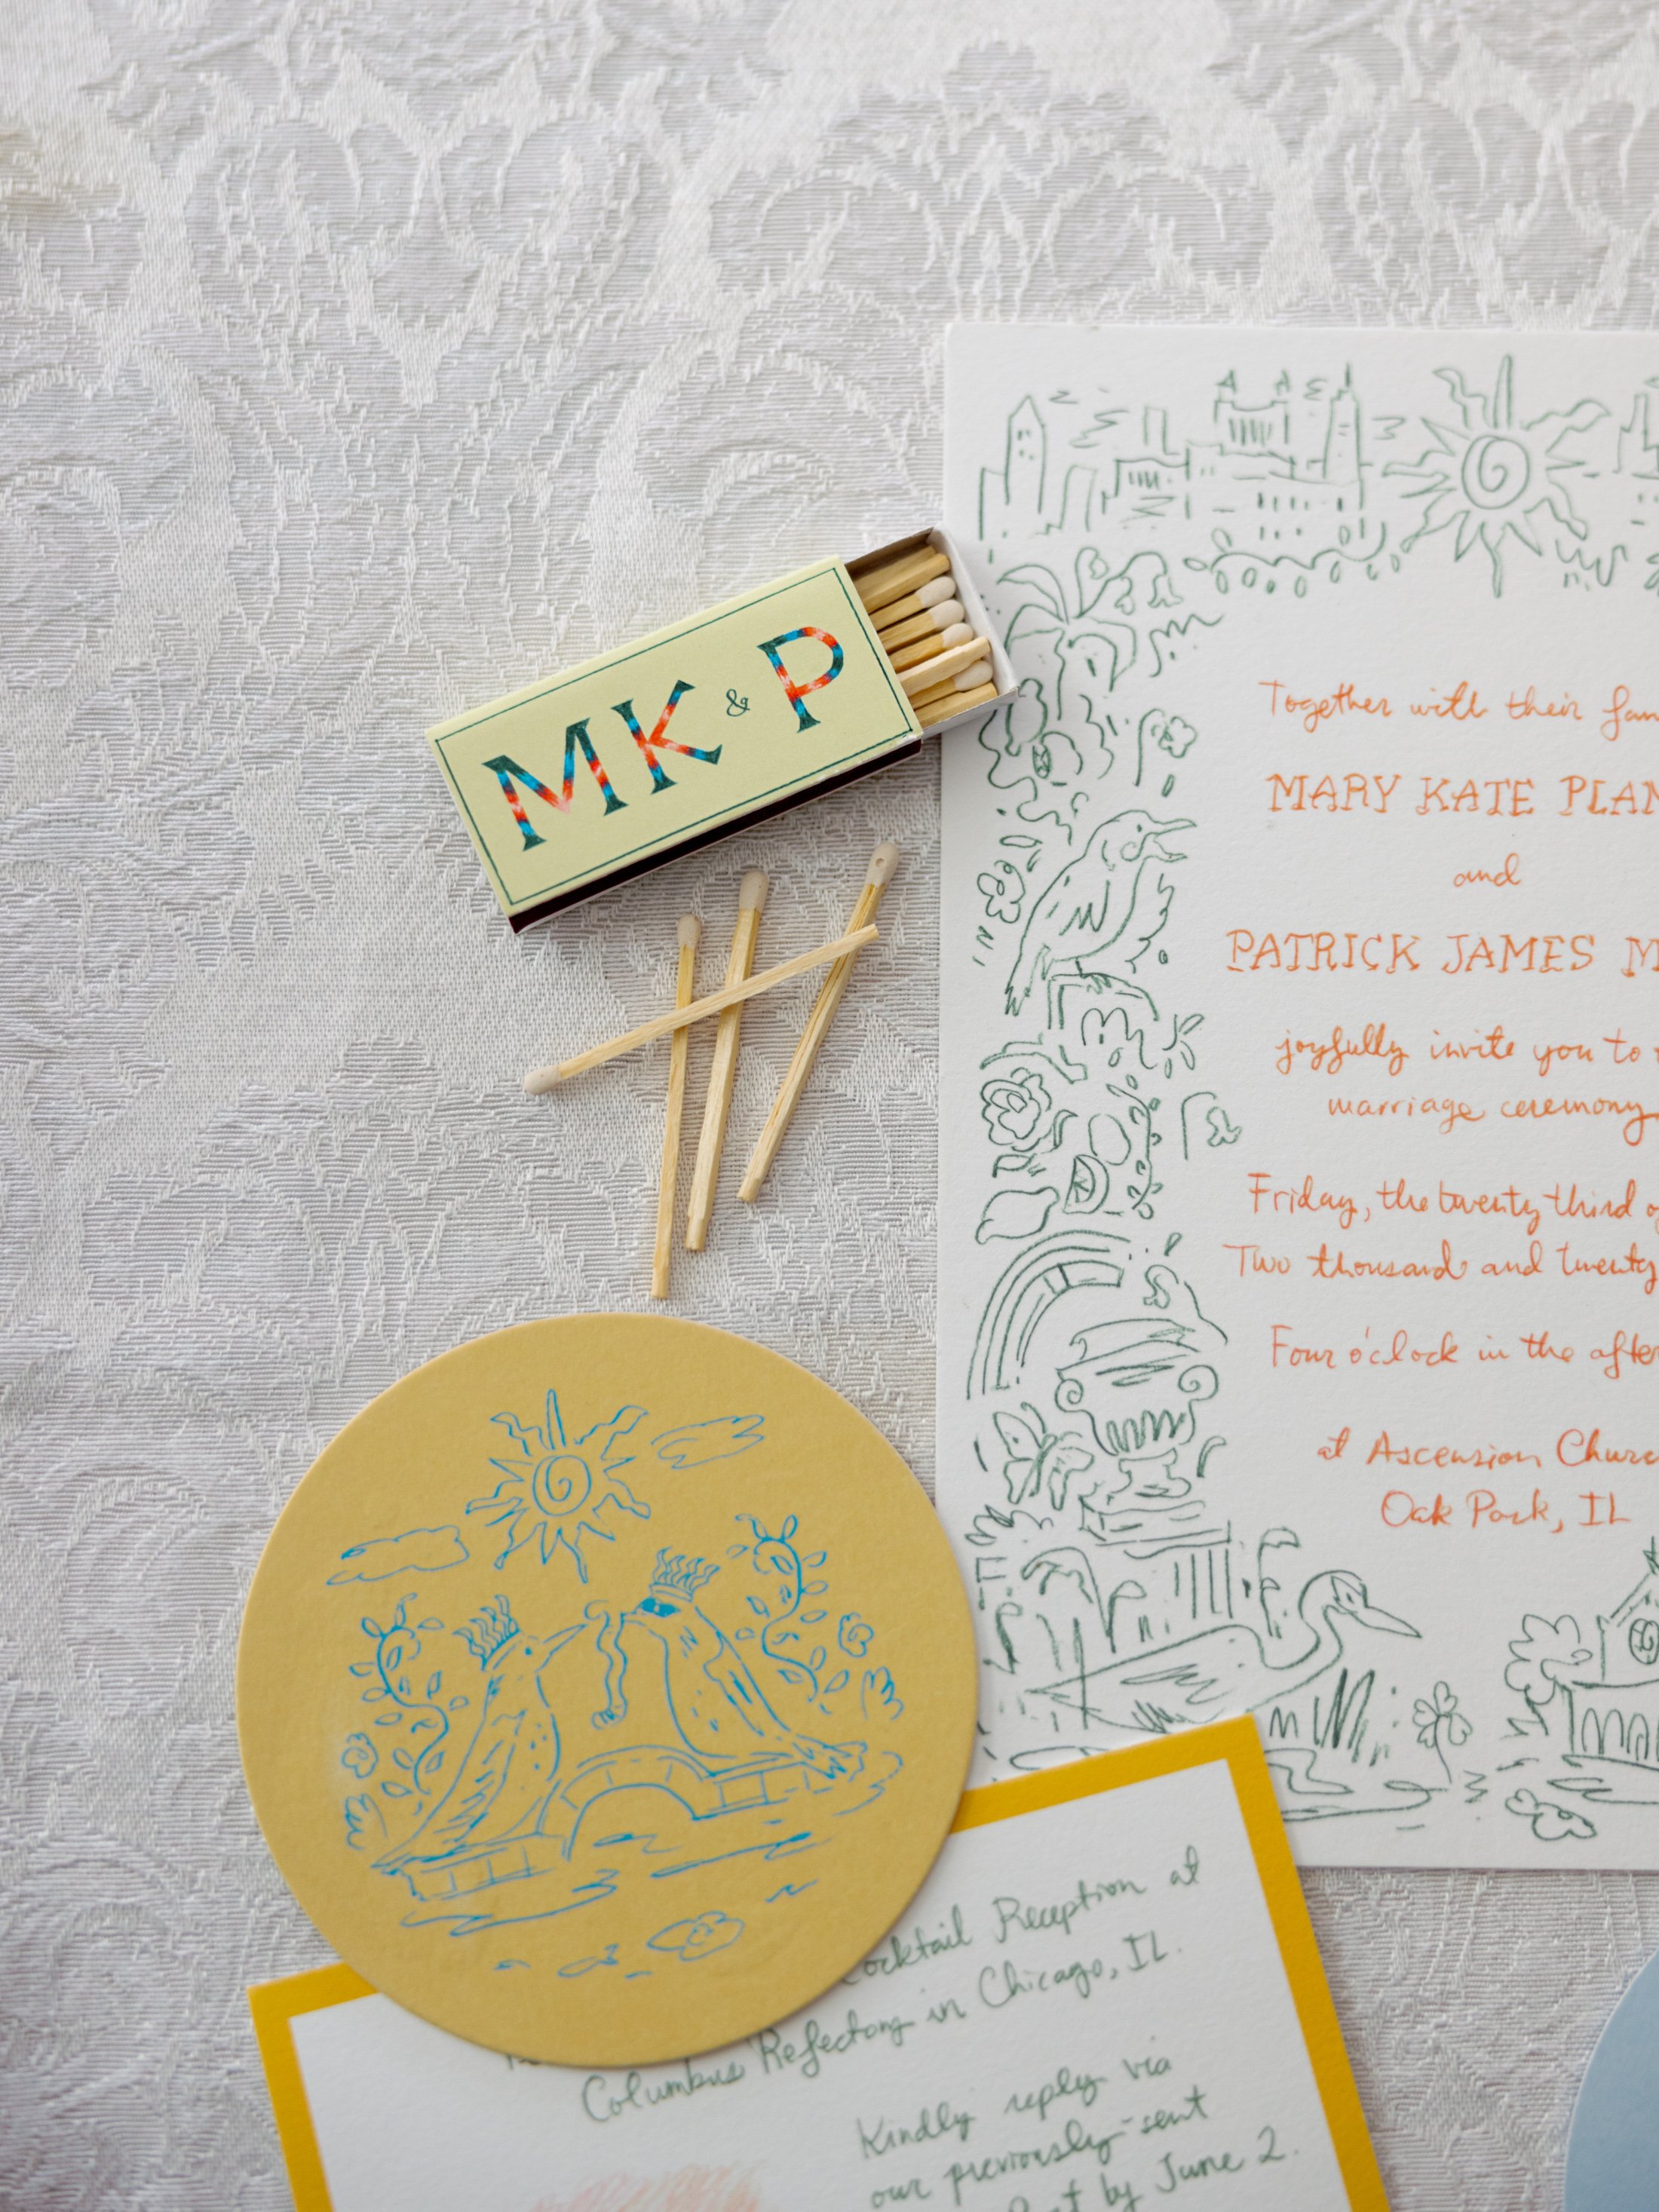 MK & P
Together with their fam
MARY KATE PLAN
and
PATRICK JAMES M
joyfully invite you to
marriage ceremony
Friday, the twenty third of
Two thousand and twenty
Four o'clock in the after
at Ascension Churc
Oak Park, IL
Cocktail Reception at
Columbus Refectory in Chicago, IL.
Kindly reply via
our previously-sent
by June 2.